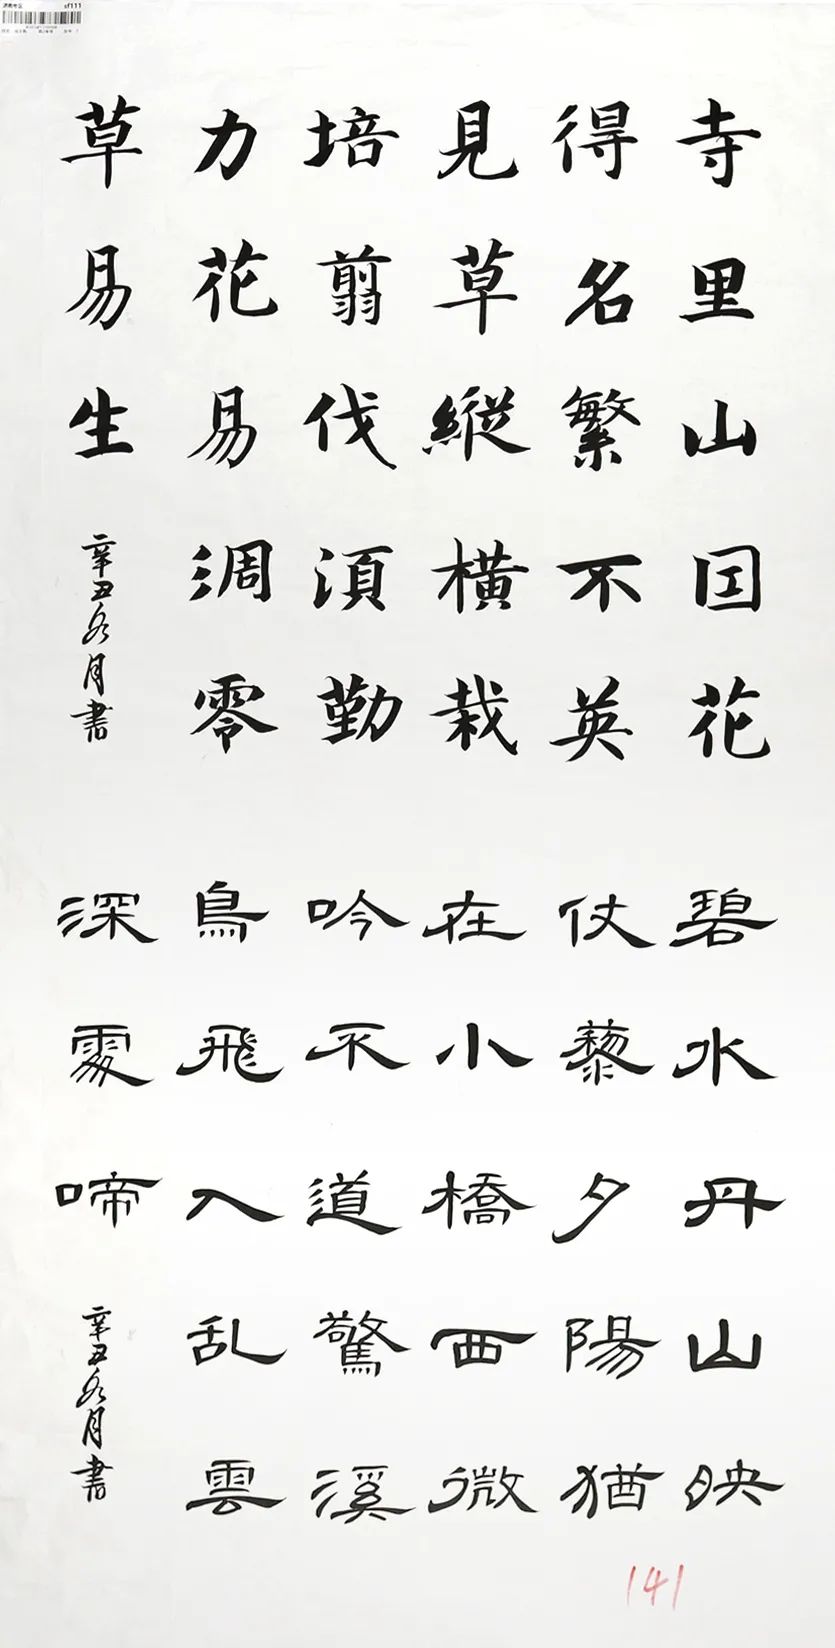 sf111
寺里山囯花
得名繁不英
見草縱橫栽
培翦伐湏勤
力花易淍零
草易生
辛丑冬月書
碧水丹山映
仗藜夕陽猶
在小橋西微
吟不道驚溪
鳥飛入乱雲
深處啼
辛丑冬月書
141